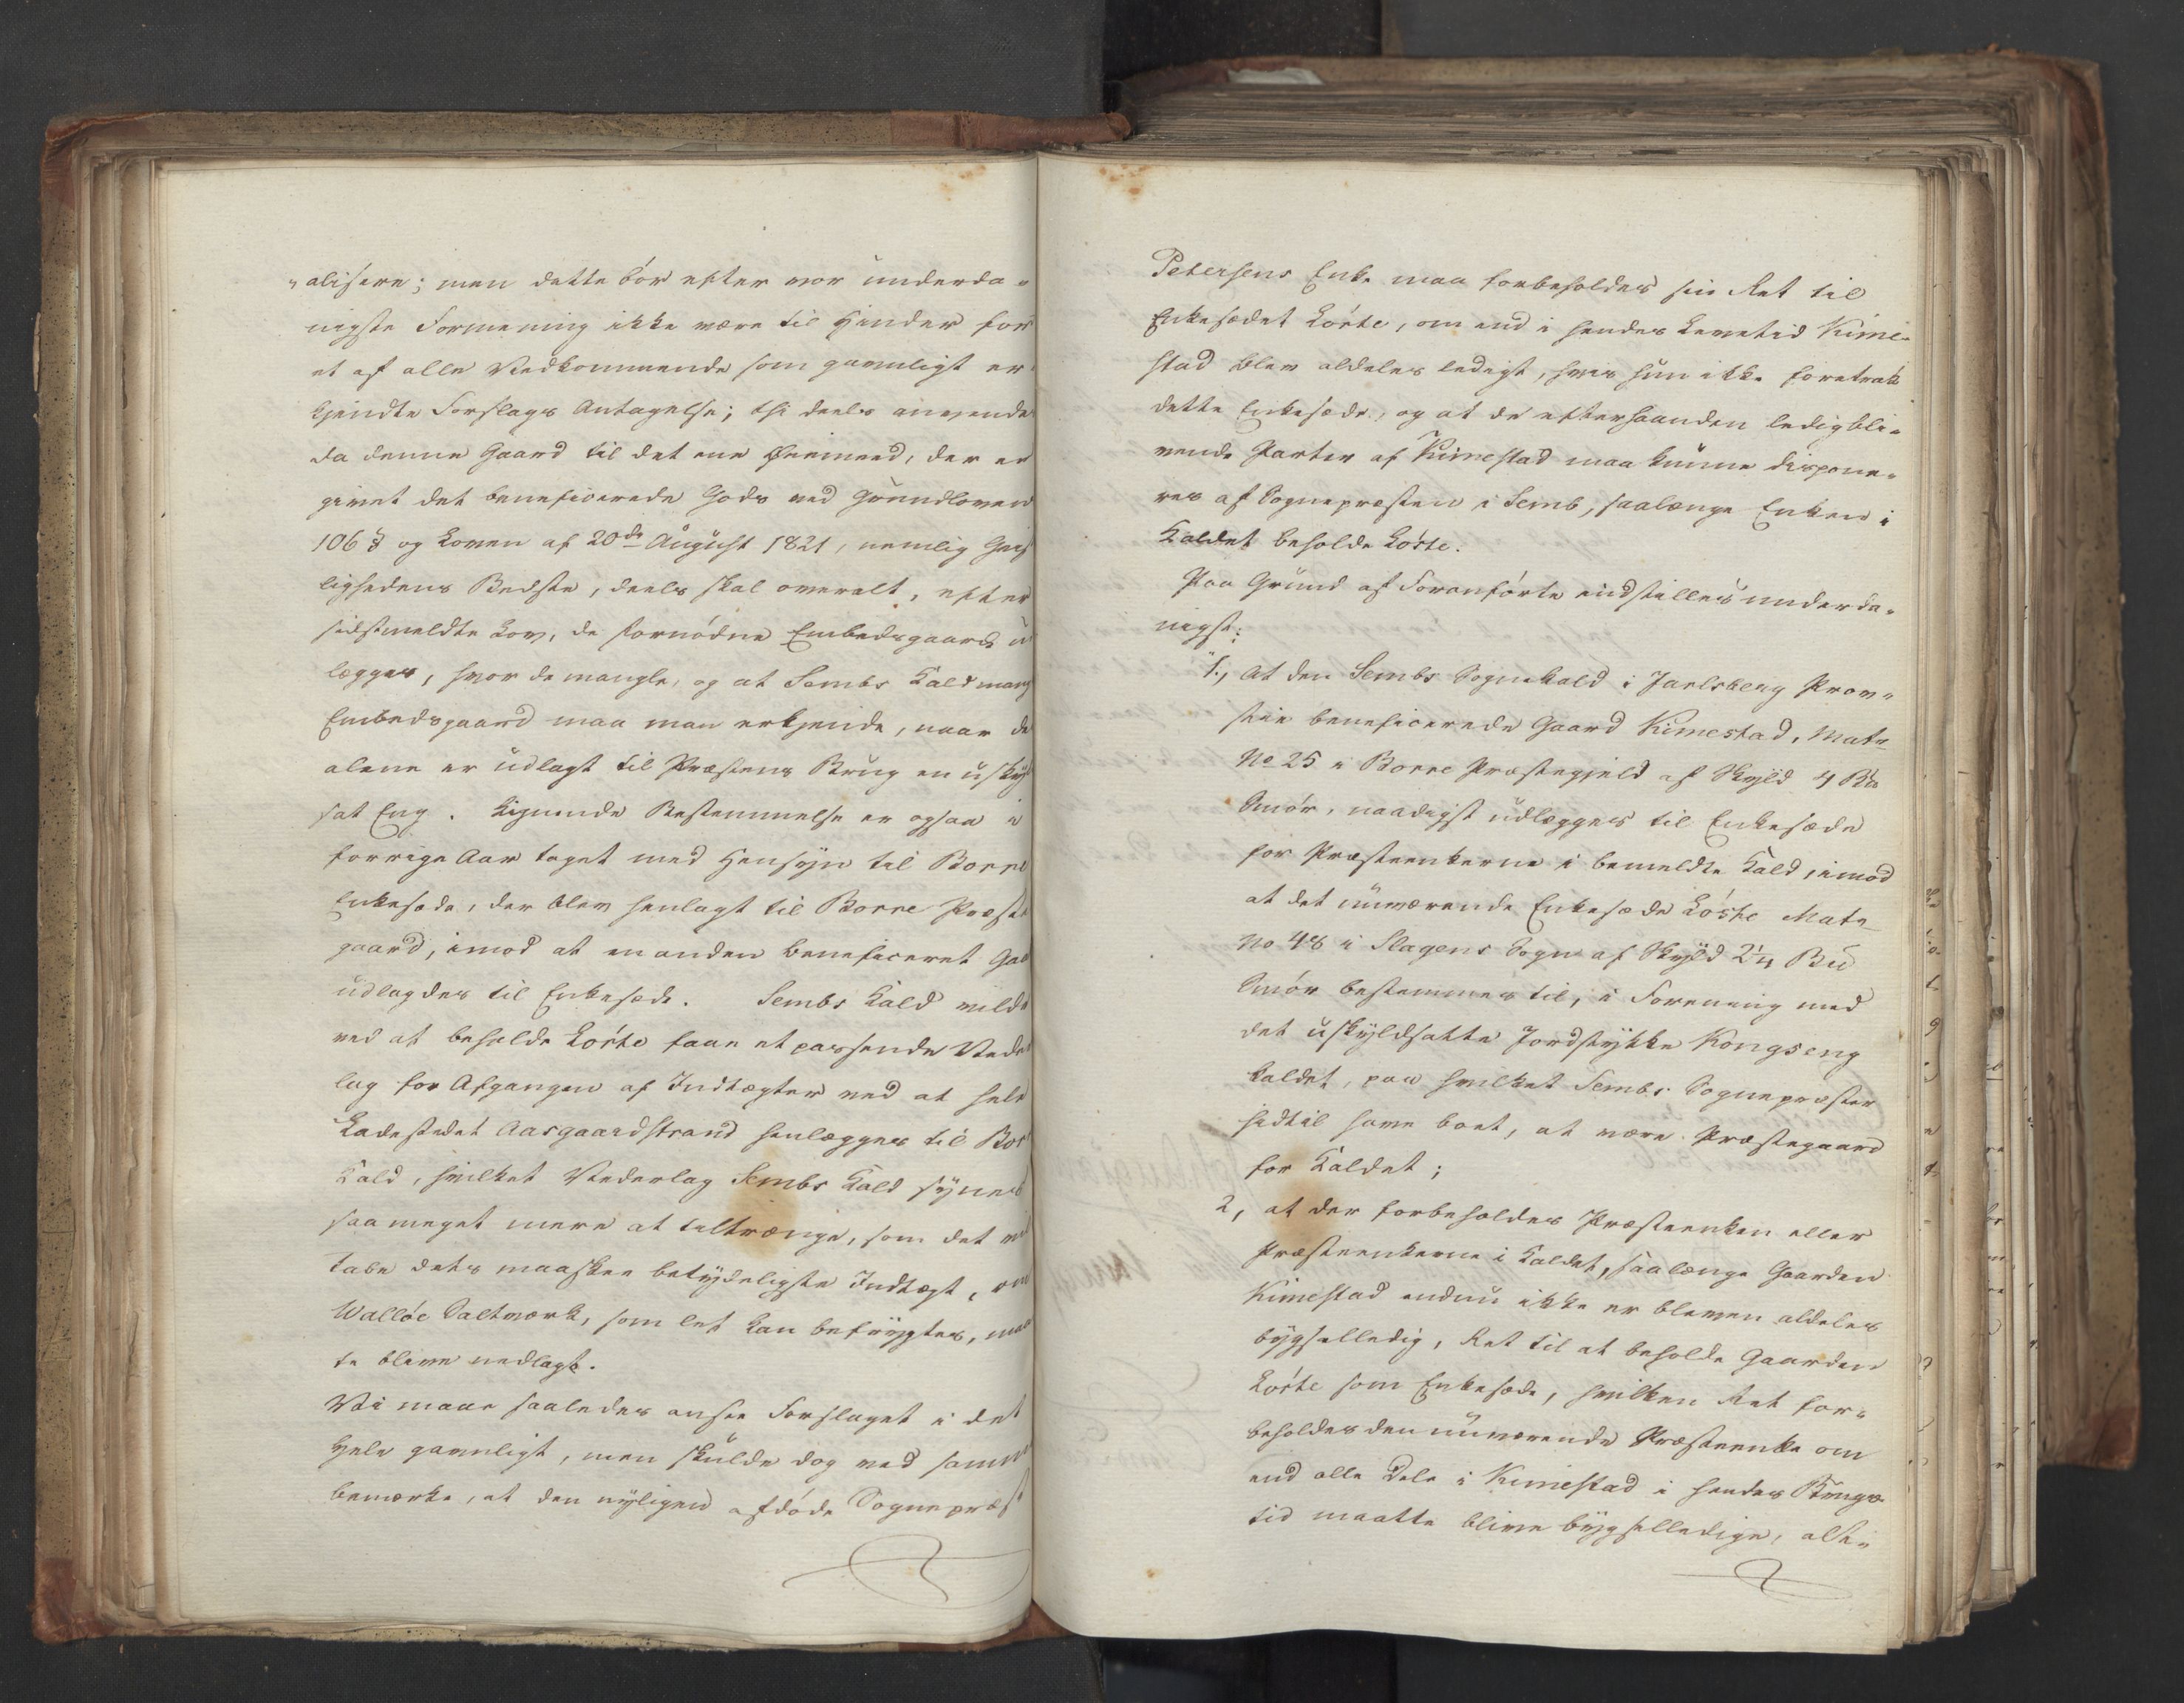 „alisere; men dette bör efter vor underda„
nigste Formening ikke være til Hinder for
et af alle Vedkommende som gavnligt er„
kjendte Forslags Antagelse; thi deels anvendes
da denne Gaard til det ene Øiemeed, der er
givet det beneficerede Gods ved Grundlovens
106 § og Loven af 20de August 1821, nemlig Geist
lighedens Bedste, deels skal overalt, efter
sidstmeldte Lov, de fornödne Embedsgaarde u
lægges, hvor de mangle, og at Sembs Kald mang
Embedsgaard maa man erkjende, naar de
alene er udlagt til Præstens Brug en uskyld
sat Eng. Lignende Bestemmelse er ogsaa i
forrige Aar taget med Hensyn til Borre
Enkesæde, der blev henlagt til Borre Præste
gaard, imod at en anden beneficeret Gaa
udlagdes til Enkesæde. Sembs Kald vilde
ved at beholde Lörte faae et passende Veder
lag for Afgangen af Indtægter ved at hele
Ladestedet Aasgaardstrand henlægges til Bor
Kald, hvilket Vederlag Sembs Kald synes
saa meget mere at tiltrænge, som det vil
tabe dets maaskee betydeligste Indtægt, om
Wallöe Saltværk, som let kan befrygtes, maa
te blive nedlagt.
Vi maae saaledes ansee Forslaget i det
Hele gavnligt, men skulde dog ved samme
bemærke, at den nyligen afdöde Sognepræst
Petersens Enke maa forbeholdes sin Ret til
Enkesædet Lörte, om end i hendes Levetid Kime„
stad blev aldeles ledigt, hvis hun ikke foretrak
dette Enkesæde, og at de efterhaanden ledigbli„
vende Parter af Kimestad maa kunne dispone„
res af Sognepræsten i Semb, saalænge Enken i
Kaldet beholde Lörte.
Paa Grund af Foranförte indstilles underda„
nigst:
1., At den Sembs Sognekald i Jarlsberg Prov„
stie beneficerede Gaard Kimestad, Mate
No 25 i Borre Præstegjeld af Skyld 4 Bd
Smör, naadigst udlægges til Enkesæde
for Præsteenkerne i bemeldte Kald, imod
at det nuværende Enkesæde Lörte Mate
No 48 i Slagens Sogn af Skyld 2¼ Bd
Smör bestemmes til, i Forening med
det uskyldsatte Jordstykke Kongseng
kaldet, paa hvilket Sembs Sognepræster
hidtil have boet, at være Præstegaard
for Kaldet;
2, at der forbeholdes Præsteenken eller
Præsteenkerne i Kaldet, saalænge Gaarden
Kimestad endnu ikke er bleven aldeles
bygselledig, Ret til at beholde Gaarden
Lörte som Enkesæde, hvilken Ret for„
beholdes den nuværende Præsteenke om
end alle Dele i Kimestad i hendes Brugs
tid maatte blive bygselledige, alt„